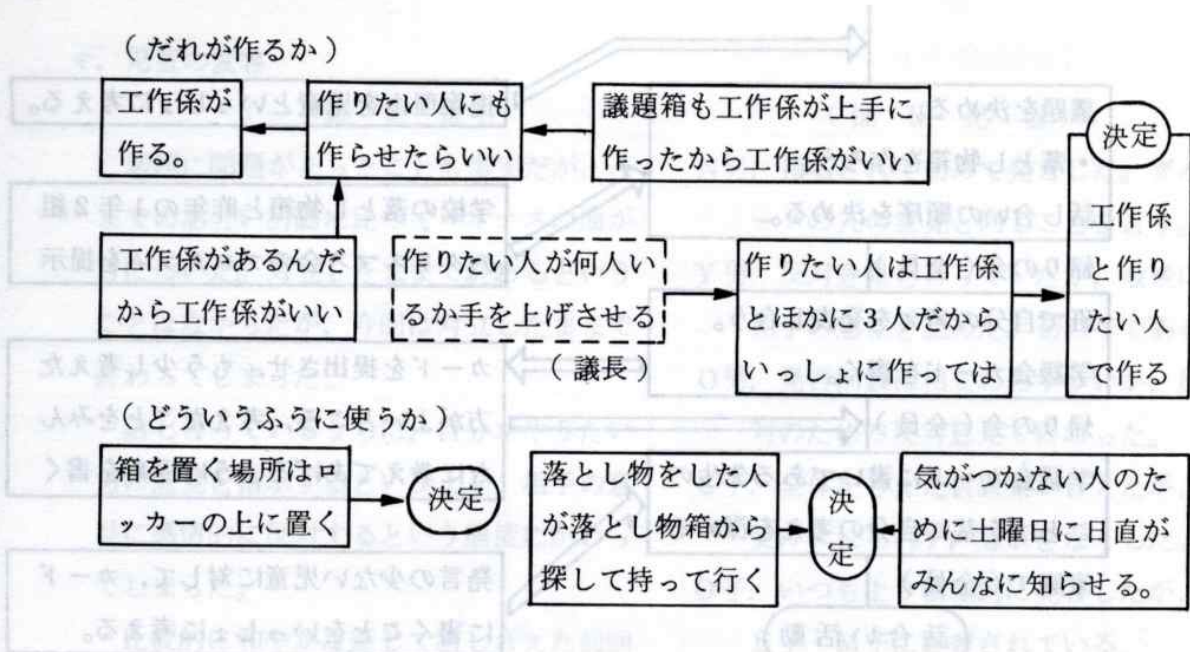 (だれが作るか)
工作係が
作る。
作りたい人にも
作らせたらいい
議題箱も工作係が上手に
作ったから工作係がいい
決定
工作係
と作り
たい人
で作る
工作係があるんだ
から工作係がいい
作りたい人が何人い
るか手を上げさせる
(議長)
作りたい人は工作係
とほかに3人だから
いっしょに作っては
(どういうふうに使うか)
箱を置く場所はロ
ッカーの上に置く
決定
落とし物をした人
が落とし物箱から
探して持って行く
決
定
気がつかない人のた
めに土曜日に日直が
みんなに知らせる。